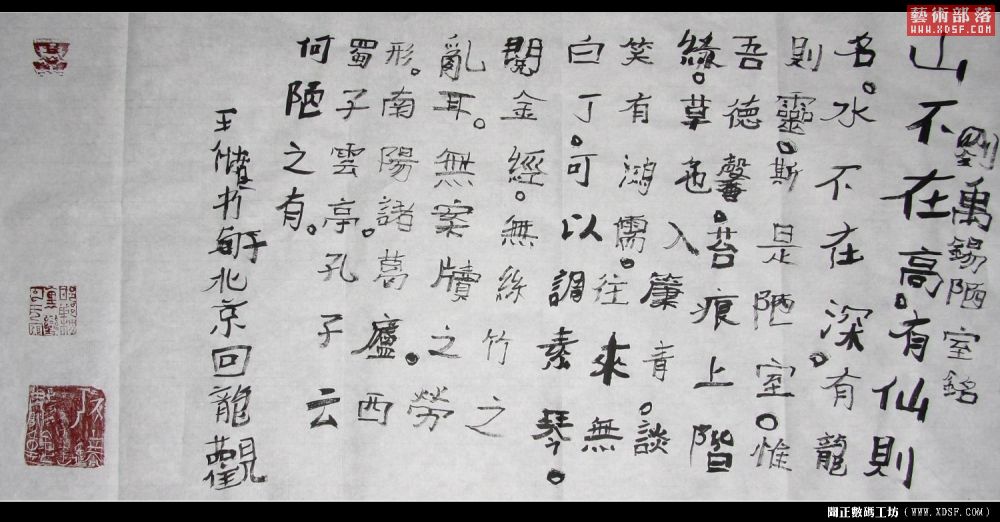 藝術部落
WWW.XDSF.COM
劉禹錫陋室銘
山不在高。有仙則
名。水不在深。有龍
則靈。斯是陋室。惟
吾德馨。苔痕上階
綠。草色入簾青。談
笑有鴻儒。往來無
白丁。可以調素琴。
閱金經。無絲竹之
亂耳。無案牘之勞
形。南陽諸葛廬。西
蜀子雲亭。孔子云
何陋之有。
王 北京回龍觀
正數碼工坊（WWW.XDSF.COM）